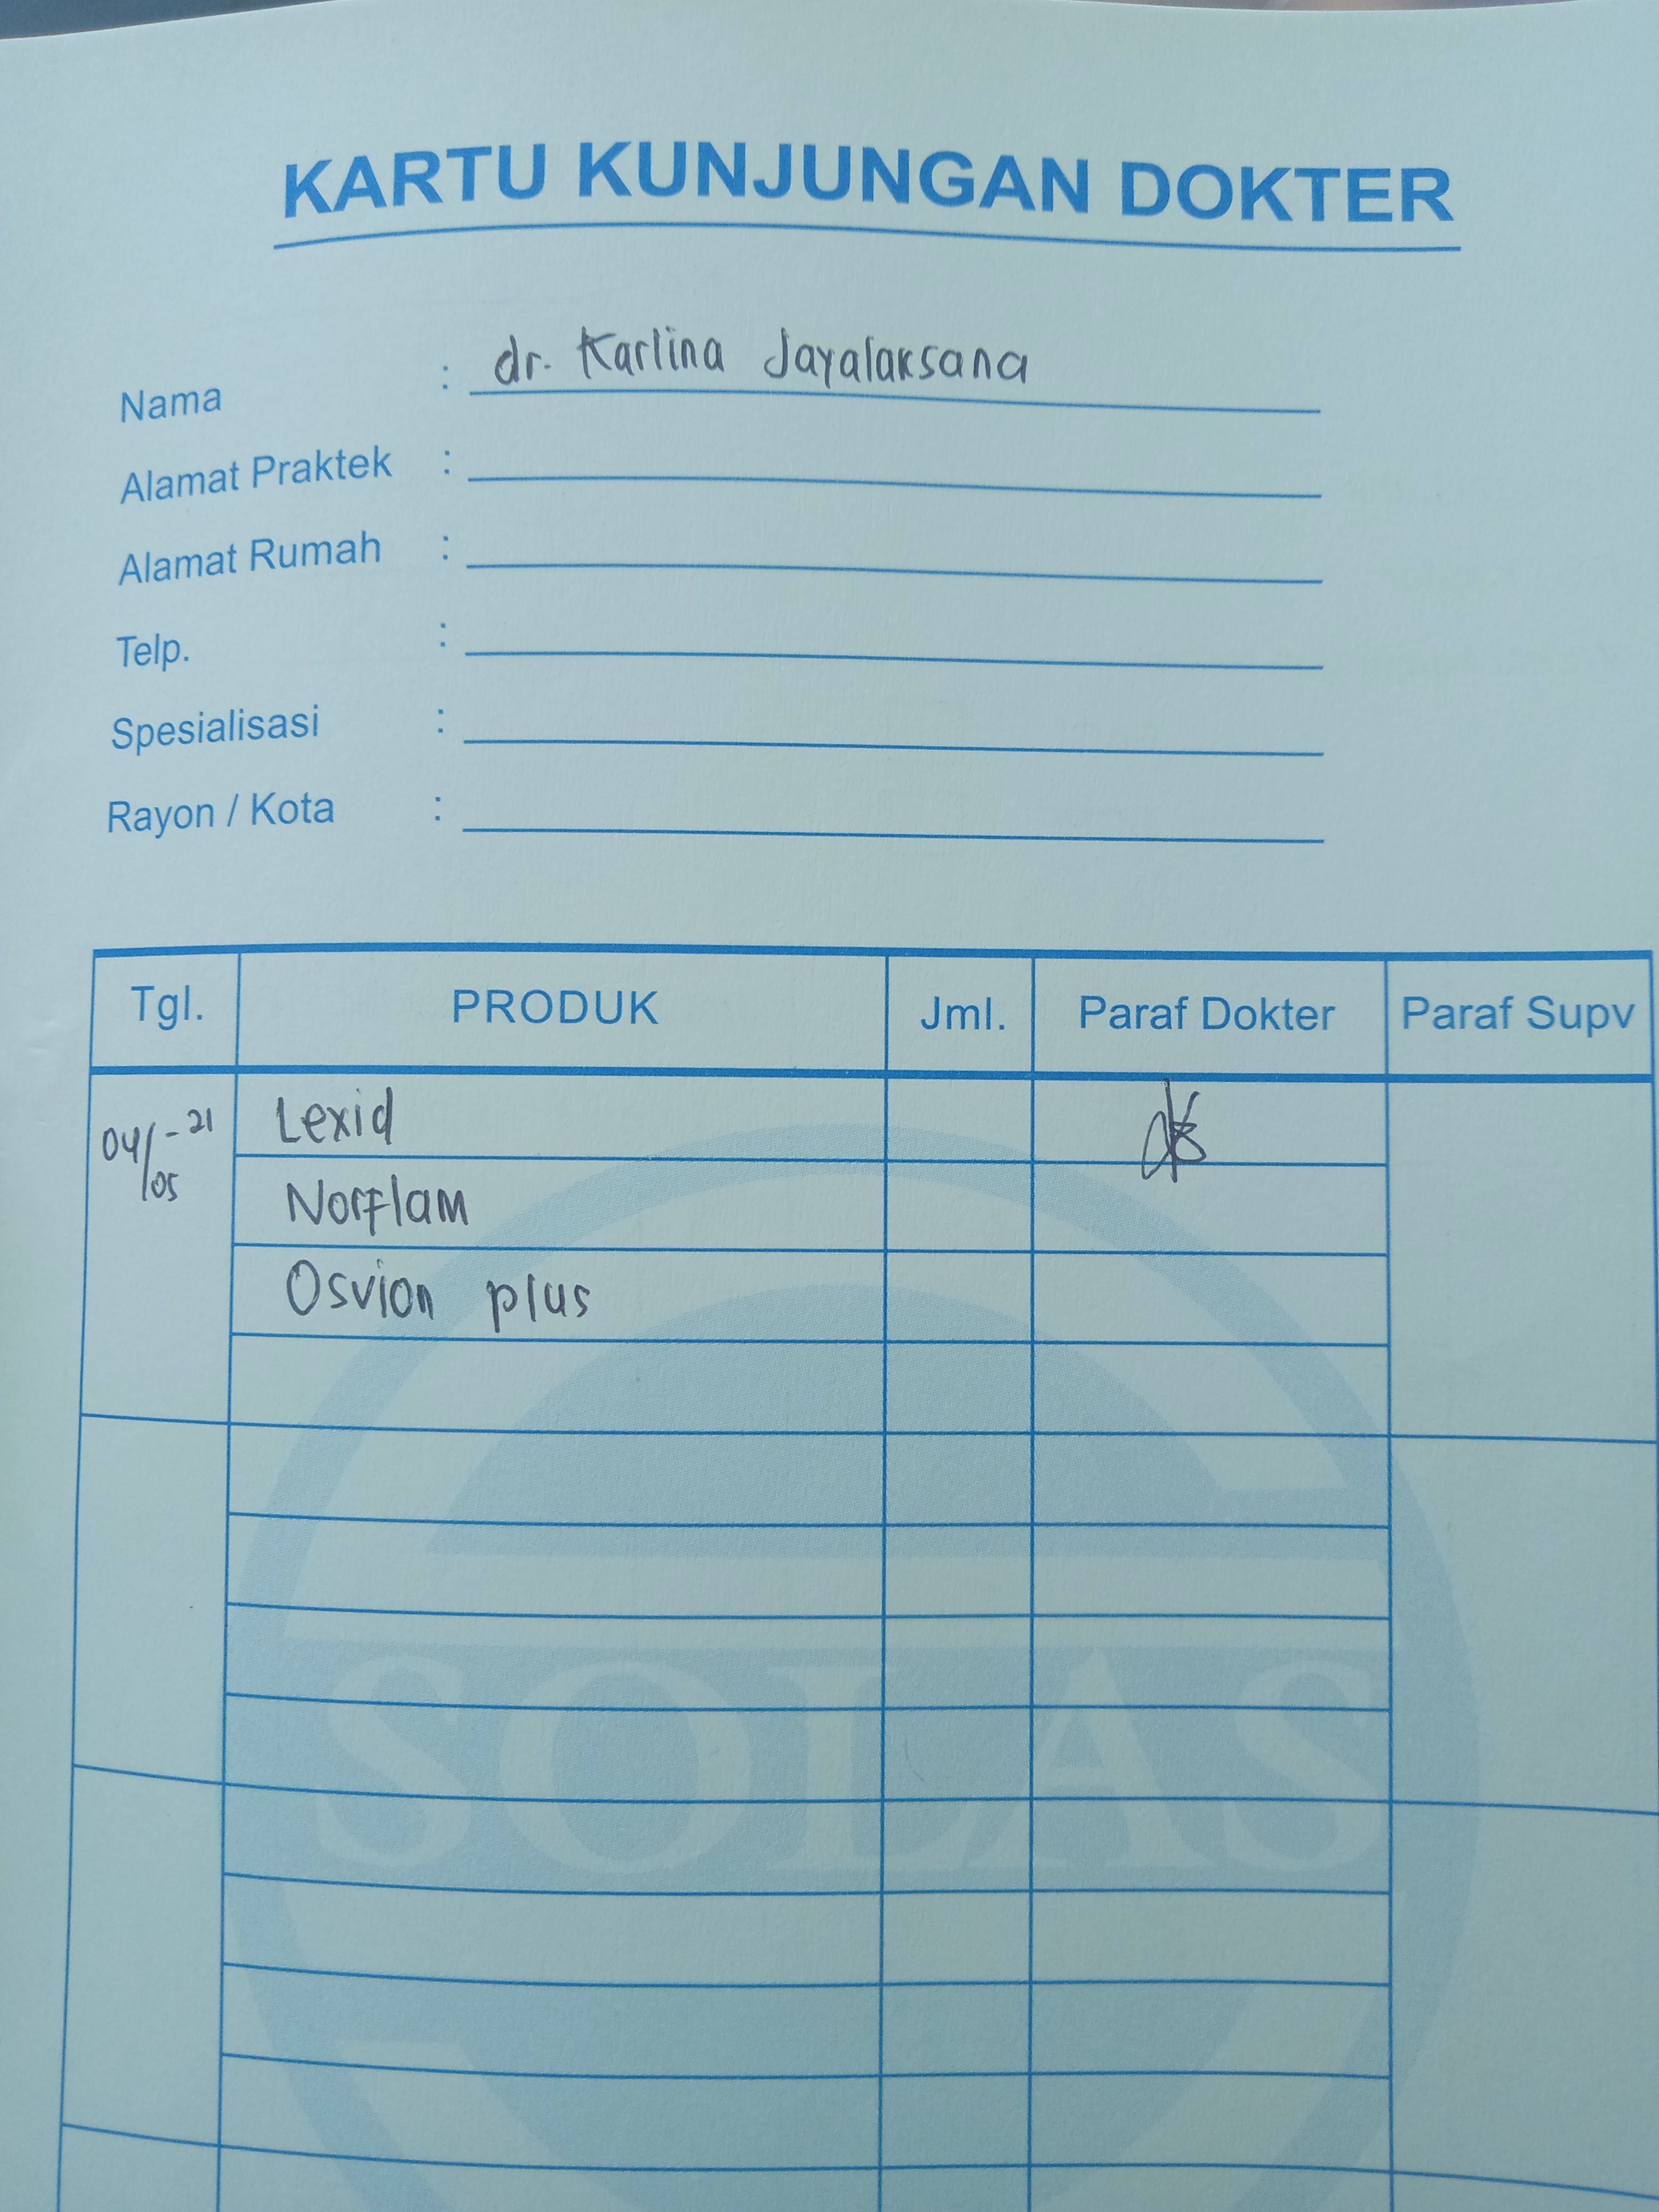 KARTU KUNJUNGAN DOKTER
Nama : dr. Karlina Jayalaksana
Alamat Praktek :
Alamat Rumah :
Telp. :
Spesialisasi :
Rayon / Kota :
Tgl. PRODUK Jml. Paraf Dokter Paraf Supv
04/05-21 Lexid
Norflam
Osvion plus
SOLAS